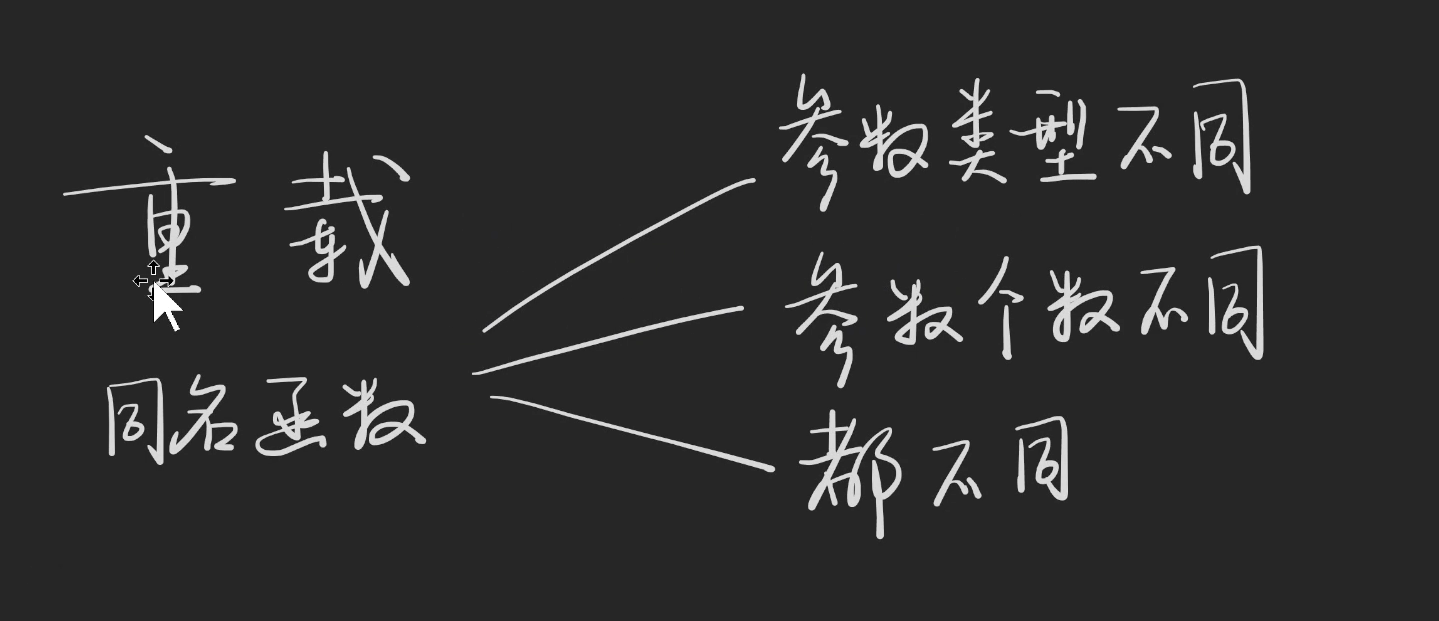 重载
同名函数
参数类型不同
参数个数不同
都不同